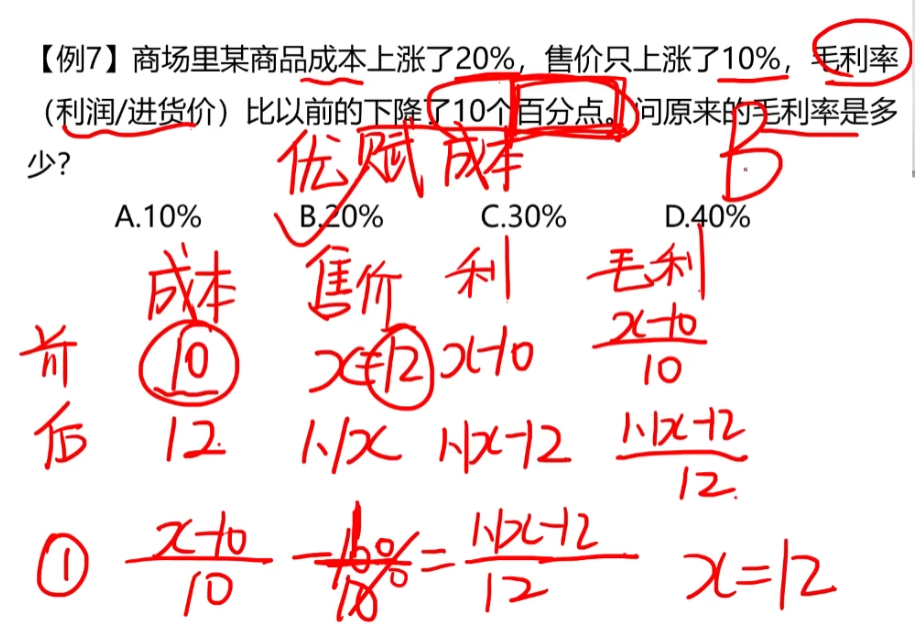 【例7】商场里某商品成本上涨了20%，售价只上涨了10%，毛利率
（利润/进货价）比以前的下降了10个百分点。问原来的毛利率是多
少？
优赋 成本 B
A.10% B.20% C.30% D.40%
成本 售价 利 毛利
前 10 x=12 x-10 x-10/10
后 12. 1.1x 1.1x-12 1.1x-12/12.
① x-10/10 - = 1.1x-12/12 x=12